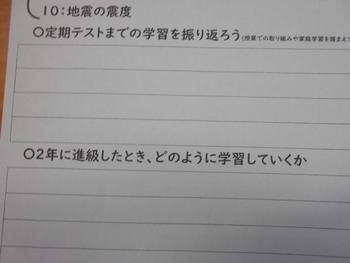 10：地震の震度
〇定期テストまでの学習を振り返ろう(授業での取り組みや家庭学習を踏まえて
〇2年に進級したとき、どのように学習していくか